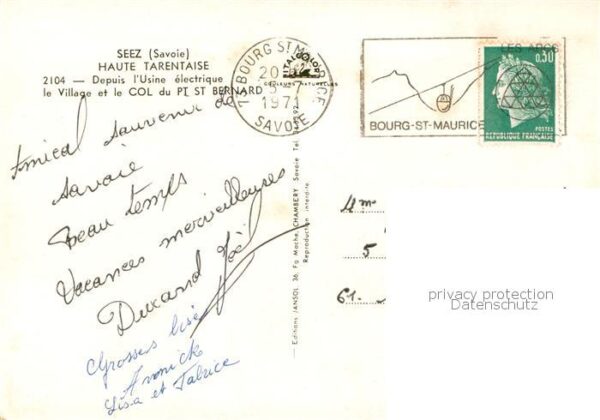 SEEZ (Savoie)
HAUTE TARENTAISE
2104 — Depuis l'Usine électrique
le Village et le COL du PT ST BERNARD
Amical souvenir de
Savoie
Beau temps
Vacances merveilleuses
Durand Joël
Grosses bises
Annick
Lisa et Fabrice
BOURG ST MAURICE
1971
SAVOIE
COULEURS NATURELLES
Editions JANSOL 36, Fg Mache, CHAMBERY Savoie Tel.
Reproduction interdite
LES ARCS
BOURG-ST-MAURICE
0,30
POSTES
REPUBLIQUE FRANÇAISE
4m
5
61.
privacy protection
Datenschutz